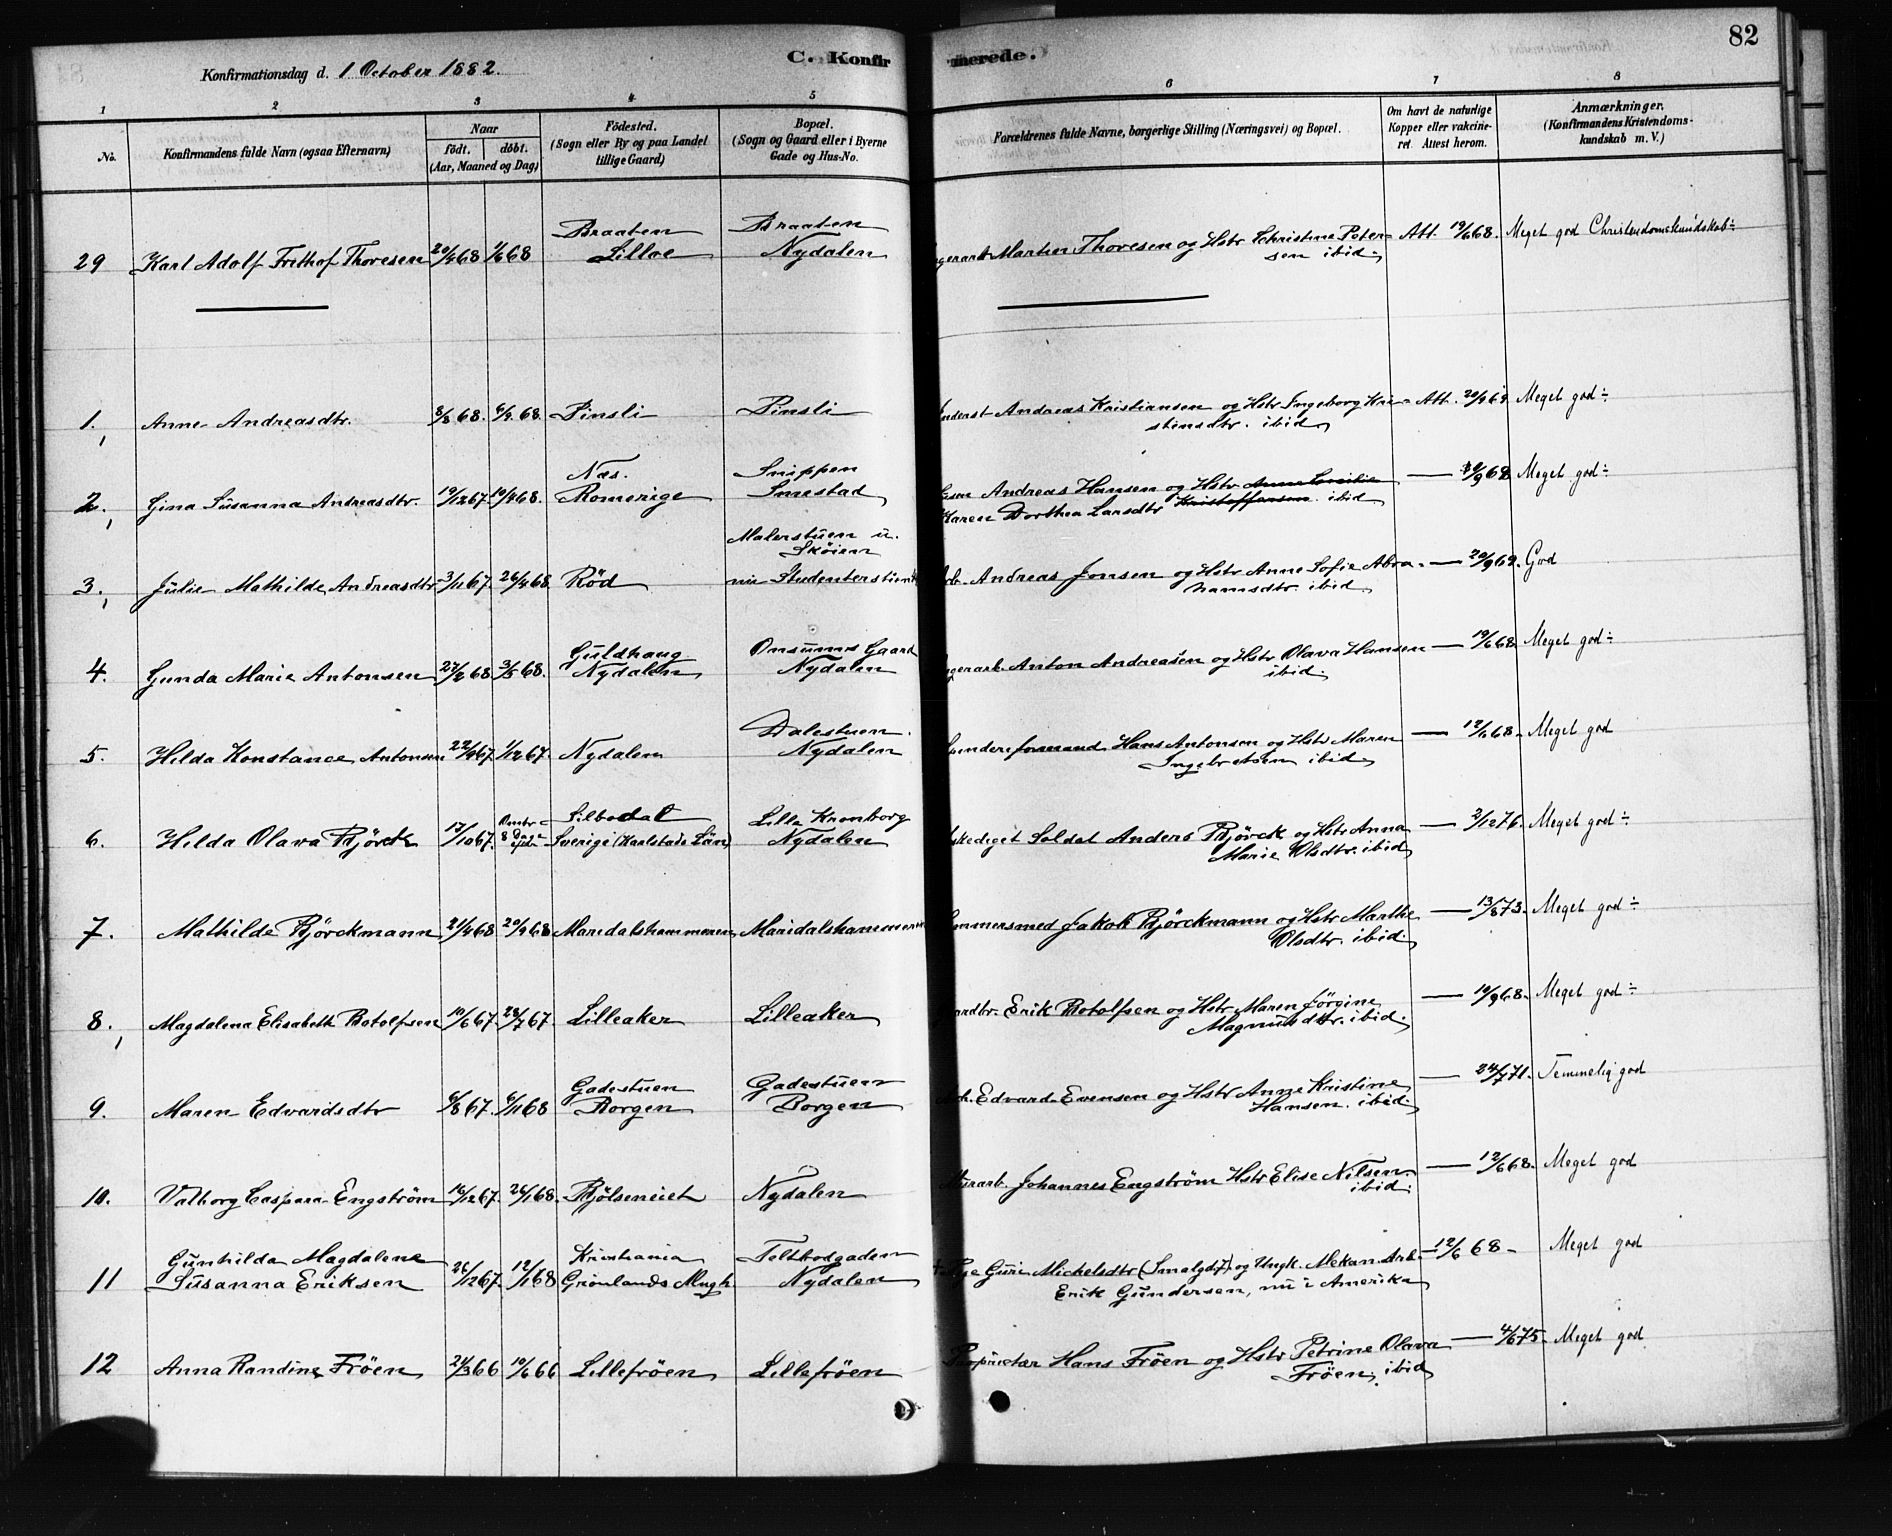 82
Konfirmationsdag d. 1 October 1882.
C. Konfirmerede.
1 2 3 4 5 6 7 8
No. Konfirmandens fulde Navn (ogsaa Efternavn)
Naar
født. døbt.
(Aar, Maaned og Dag)
Fødested.
(Sogn eller By og paa Landet
tillige Gaard)
Bopæl.
(Sogn og Gaard eller i Byerne
Gade og Hus-No.
Forældrenes fulde Navne, borgerlige Stilling (Næringsvei) og Bopæl.
Om havt de naturlige
Kopper eller vakcine-
ret. Attest herom.
Anmærkninger.
(Konfirmandens Kristendoms-
kundskab m. V.)
Braaten Braaten
29 Karl Adolf Frithof Thoresen 68 68 Lilloe Nydalen Martin Thoresen og Hstr Christine Peter- Att. 19/6 68. Meget god Christendomskundskab ÷
sen ibid.
1. Anne Andreasdtr. 8/8 68. 6/9 68. Pinsli Pinsli Andreas Kristiansen og Hstr Ingeborg Kri- Att. Meget god ÷
stensdtr. ibid
Næs. Snippen
2. Gina Susanna Andreasdtr. 19/12 67. 68. Romerige Smestad Andreas Hansen og Hstr 68 Meget god ÷
Karen Dorthea Larsdtr Kristoffersen ibid
Malerstuen u.
Skøien
3. Julie Mathilde Andreasdtr 3/11 67. 26/4 68. Rød nu Andreas Jonsen og Hstr Anne Sofie Abra- — 20/9 69. God
hamsdtr. ibid.
Guldhaug Onsums Gaard
4. Gunda Marie Antonsen 68 3/5 68. Nydalen Nydalen Anton Andreasen og Hstr Olava Hansen — 19/6 68. Meget god ÷
ibid
Dalestuen
5. Hilda Konstance Antonsen 22/9 67. 1/12 67. Nydalen Nydalen formand Hans Antonsen og Hstr Maren — 12/6 68. Meget god
Ingebretsen ibid
Silbodal Lille Kronborg
6. Hilda Olava Bjørck 17/10 67. Omtr. 8 Dage Sverige (Karlstads Län) Nydalen Soldat Anders Bjørck og Hstr Anna — 2/12 76. Meget god ÷
Marie Olsdtr. ibid
7. Mathilde Bjørckmann 68 68 Maridalshammeren Maridalshammeren Jakob Bjørckmann og Hstr Marthe — 13/8 73. Meget god ÷
Olsdtr. ibid.
8. Magdalena Elisabeth Botolfsen 10/6 67. 28/7 67. Lilleaker Lilleaker Erik Botolfsen og Hstr Maren Jørgine — 19/9 68. Meget god ÷
Magnusdtr. ibid.
Gadestuen Gadestuen
9. Maren Edvardsdtr 6/8 67. 6/1 68 Borgen Borgen Edvard Evensen og Hstr Anne Kristine — 24/7 71. Temmelig god
Hansen. ibid.
10. Valborg Caspara Engström 16/12 67. 26/1 68. Bjølseneiet Nydalen Johannes Engström Hstr Elise Nilsen — 12/6 68. Meget god
ibid.
Gunhilda Magdalene Kristiania Feltbodgaden
11 Susanna Eriksen 26/12 67. 12/1 68 Grønlands Mngh Nydalen Pige Guri Michelsdtr og Ungk. Mekan. Arb. — 12/6 68 — Meget god
Erik Gundersen, nu i Amerika
12 Anna Randine Frøen 21/3 66 10/6 66 Lillefrøen Lillefrøen Proprietær Hans Frøen og Hstr Petrine Olava — 4/6 75. Meget god
Frøen. ibid